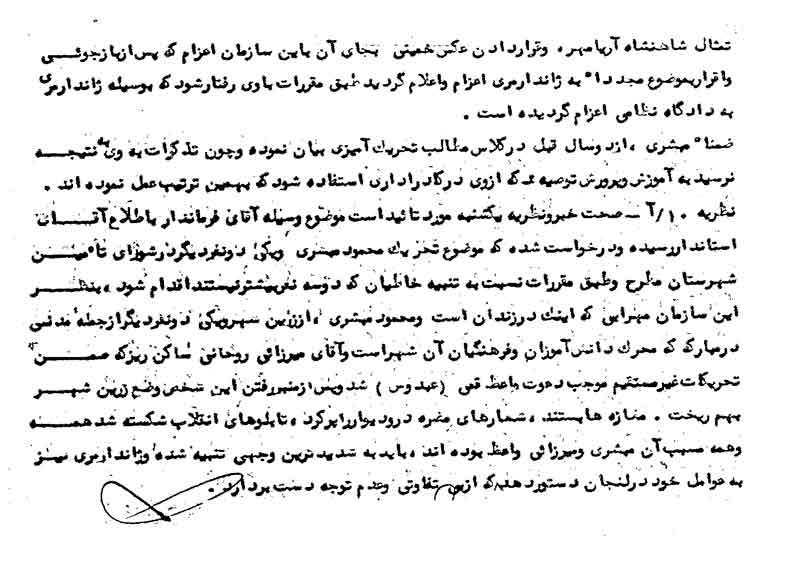 تمثال شاهنشاه آریامهر، وقراردادن عکس خمینی بجای آن باین سازمان اعزام که پس ازبازجوئی
واقراربموضوع مجددا" به ژاندارمری اعزام واعلام گردید طبق مقررات باوی رفتارشود که بوسیله ژاندارمری
به دادگاه نظامی اعزام گردیده است .
ضمنا" مبشری ، ازدوسال قبل درکلاس مطالب تحریک آمیزی بیان نموده وچون تذکرات به وی به نتیجه
نرسید به آموزش وپرورش توصیه شد که ازوی درکادراداری استفاده شود که بهمین ترتیب عمل نموده اند .
نظریه ۱۰/آ ـ صحت خبرونظریه یکشنبه مورد تائیداست موضوع وسیله آقای فرماندار باطلاع آقای
استانداررسیده ودرخواست شده که موضوع تحریک محمود مبشری ویکی دونفردیگردرشورای تأمین
شهرستان مطرح وطبق مقررات نسبت به تنبیه خاطیان که دوسه نفربیشترنیستند اقدام شود ، بنظر
این سازمان مهرابی که اینک درزندان است ومحمود مبشری ، اززرین شهرویکی دونفردیگرازجمله مدنی
درمبارکه که محرک دانش آموزان وفرهنگیان آن شهراست وآقای میرزائی روحانی ساکن ریزکه ضمن
تحریکات غیرمستقیم موجب دعوت واعظ قمی (عبدوس) شد وپس ازمنبررفتن این شخص وضع زرین شهر
بهم ریخت . مغازه هابستند ، شعارهای مضره درودیوارراپرکرد ، تابلوهای انقلاب شکسته شد همه
وهمه مسبب آن مبشری ومیرزائی واعظ بوده اند ، باید به شدیدترین وجهی تنبیه شده وژاندارمری نیز
به عوامل خود درلنجان دستوردهد که ازبی تفاوتی وعدم توجه دست بردارد .